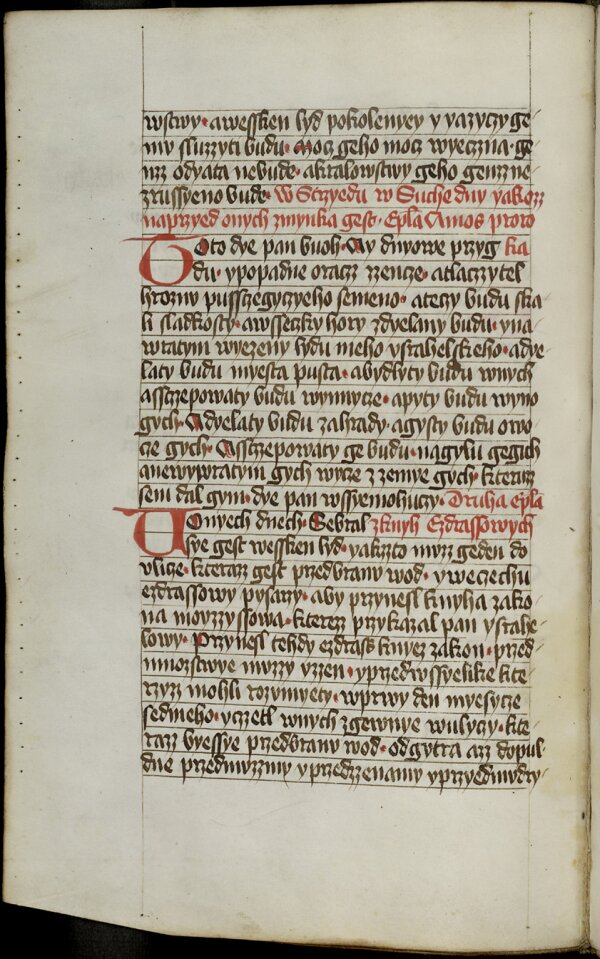 wstwy · awessken lyd pokolenyey y yazyczy ge
mv sluzzyti budu · Mocz geho mocz wyeczna · ge
nzz odyata nebude · akralowstwy geho genz ne
zrussyeno bude · W Strzyedu w Suche dny yakozz
naprzyed onych zmynka gest · Epla Amos proro
Toto dye pan buoh · Ay dnyowe przyg ka
du · ypopadne oracz zzencze · atlaczytel
hrozny pusszegyczyeho semeno · atecy budu ska
li sladkosty · awsseczky hory zdyelany budu · yna
wratym wyezeny lydu meho ystahelskeho · adye
laty budu myesta pusta · abydlyty budu wnych
asszczepowaty budu wynnycze · apyty budu wyno
gych · Adyelaty budu zahrady · agysty budu owo
cze gych · Asszczepowaty ge budu · nagylu gegich
anewywratym gych wycze z zemye gych · kterazz
sem dal gym · dye pan wssyemohuczy · Druha epla
Wonyech dnech · Sebral zknyh Ezdrassowych
sye gest wessken lyd · yakzto muzz geden do
ulicze · kterazz gest przedbrany wod · yweczechu
ezdrassowy pysarzy · aby przynesl knyha zako
na moyzzyssowa · kterez przykazal pan ystahe
lowy · Przynesl tehdy ezdrass knyez zakon · przed
mnozstwye muzzy yzzen · yprzedwssyelike kte
rzyz mohli rozumyety · wprwy den myesycze
sedmeho · yczetl wnych zgewnye wulyczy · kte
razz byessye przedbranu wod · odgytra az dopul
dne przedmuzzmy yprzedzzenamy yprzyedmudry